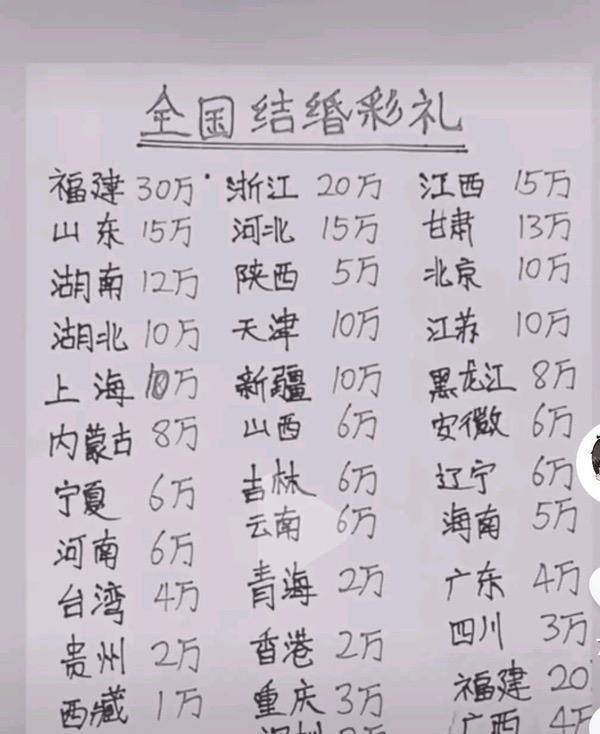 全国结婚彩礼
福建 30万 浙江 20万 江西 15万
山东 15万 河北 15万 甘肃 13万
湖南 12万 陕西 5万 北京 10万
湖北 10万 天津 10万 江苏 10万
上海 10万 新疆 10万 黑龙江 8万
内蒙古 8万 山西 6万 安徽 6万
宁夏 6万 吉林 6万 辽宁 6万
河南 6万 云南 6万 海南 5万
台湾 4万 青海 2万 广东 4万
贵州 2万 香港 2万 四川 3万
西藏 1万 重庆 3万 福建 20
广西 4万